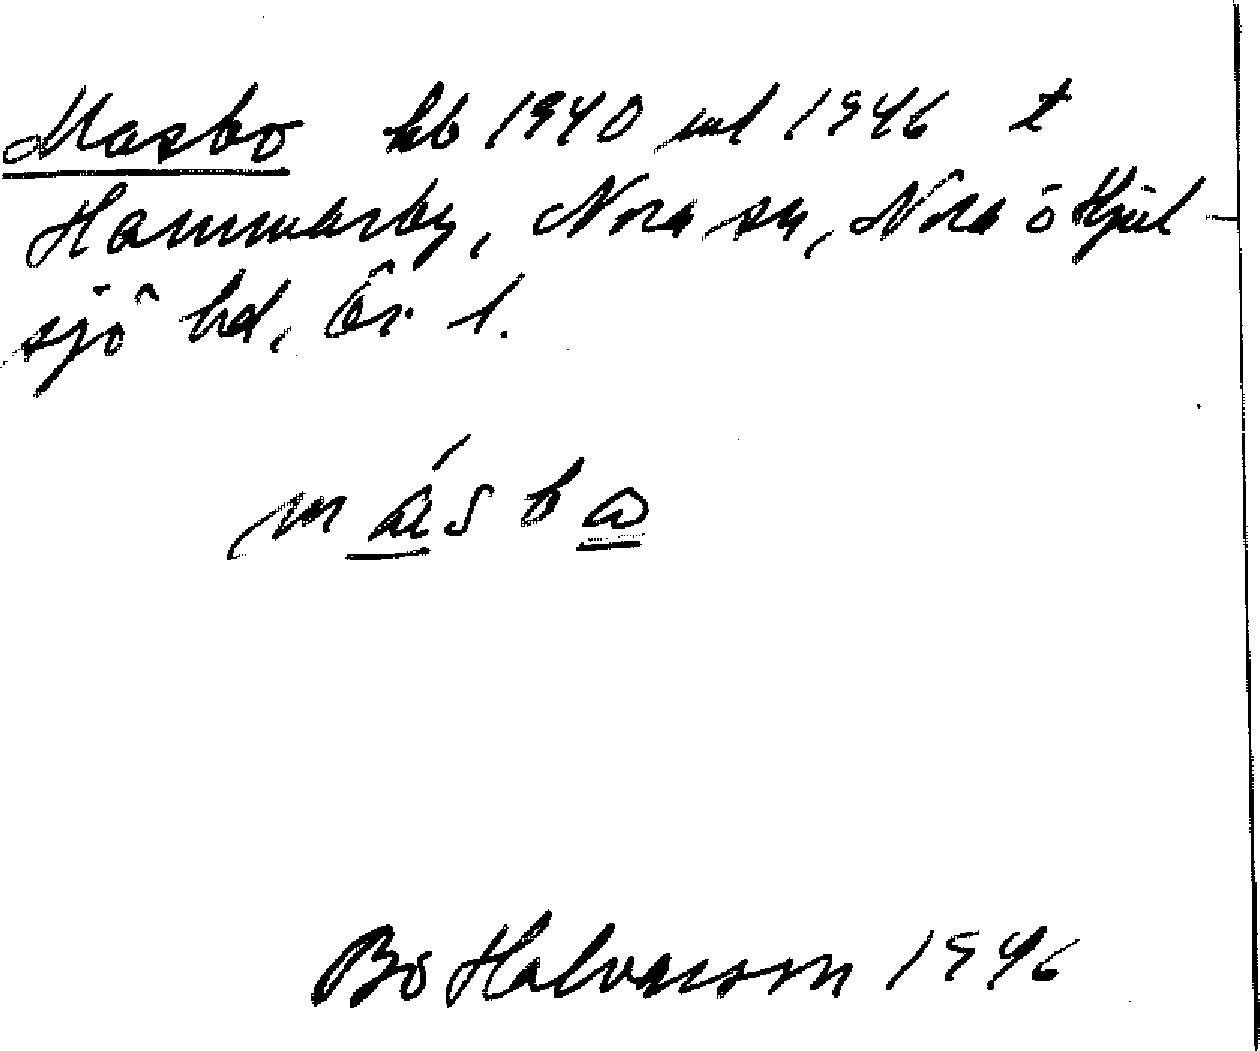 Masbo hb 1940 ml 1946 t
Hammarby, Nora sn, Nora ö Hjul-
sjö hd, Ör. l.
másbω
Bo Halvarsson 1946